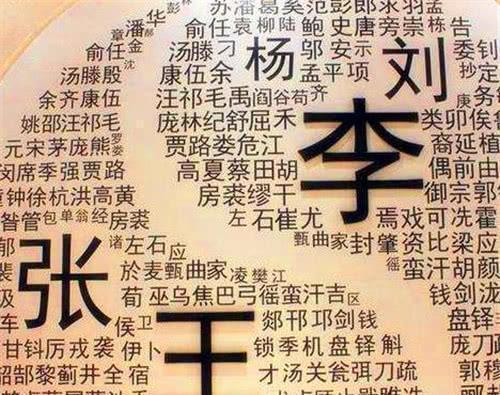 苏潘葛奚范彭郎
章潘华
俞任袁柳陆鲍史唐旁崇栋告
俞任金
汤滕刁
杨
邬安示
刘
委钊
汤滕殷沈
康伍余
孟平项
抄定
余齐康伍
汪祁毛禹阎谷苟齐
李
庚务
姚邵汪祁毛
庞林纪舒屈禾
类卯俟
元宋茅庞熊
贾路娄危江
裔延植
闵席季强贾路
高夏蔡田胡
偶前由
童钟徐杭洪高黄
房裘缪干
御宗郭
智管包单翁经房裘
左石崔尤
焉戏可冼霍
郁
诸左石应
甄曲家封肇资比梁应
张
於麦甄曲家凌樊江
徭蛮汗胡颜
荀巫乌焦巴弓徭蛮汗吉区
钱剑
车
侯卫
王
郯邗邛剑钱
盘铎
甘钭厉戎袭伊卜
锁季机盘铎斛
庞刀疏
韶郜黎蓟井全宿
才汤关瓮弭刀疏
郭穆